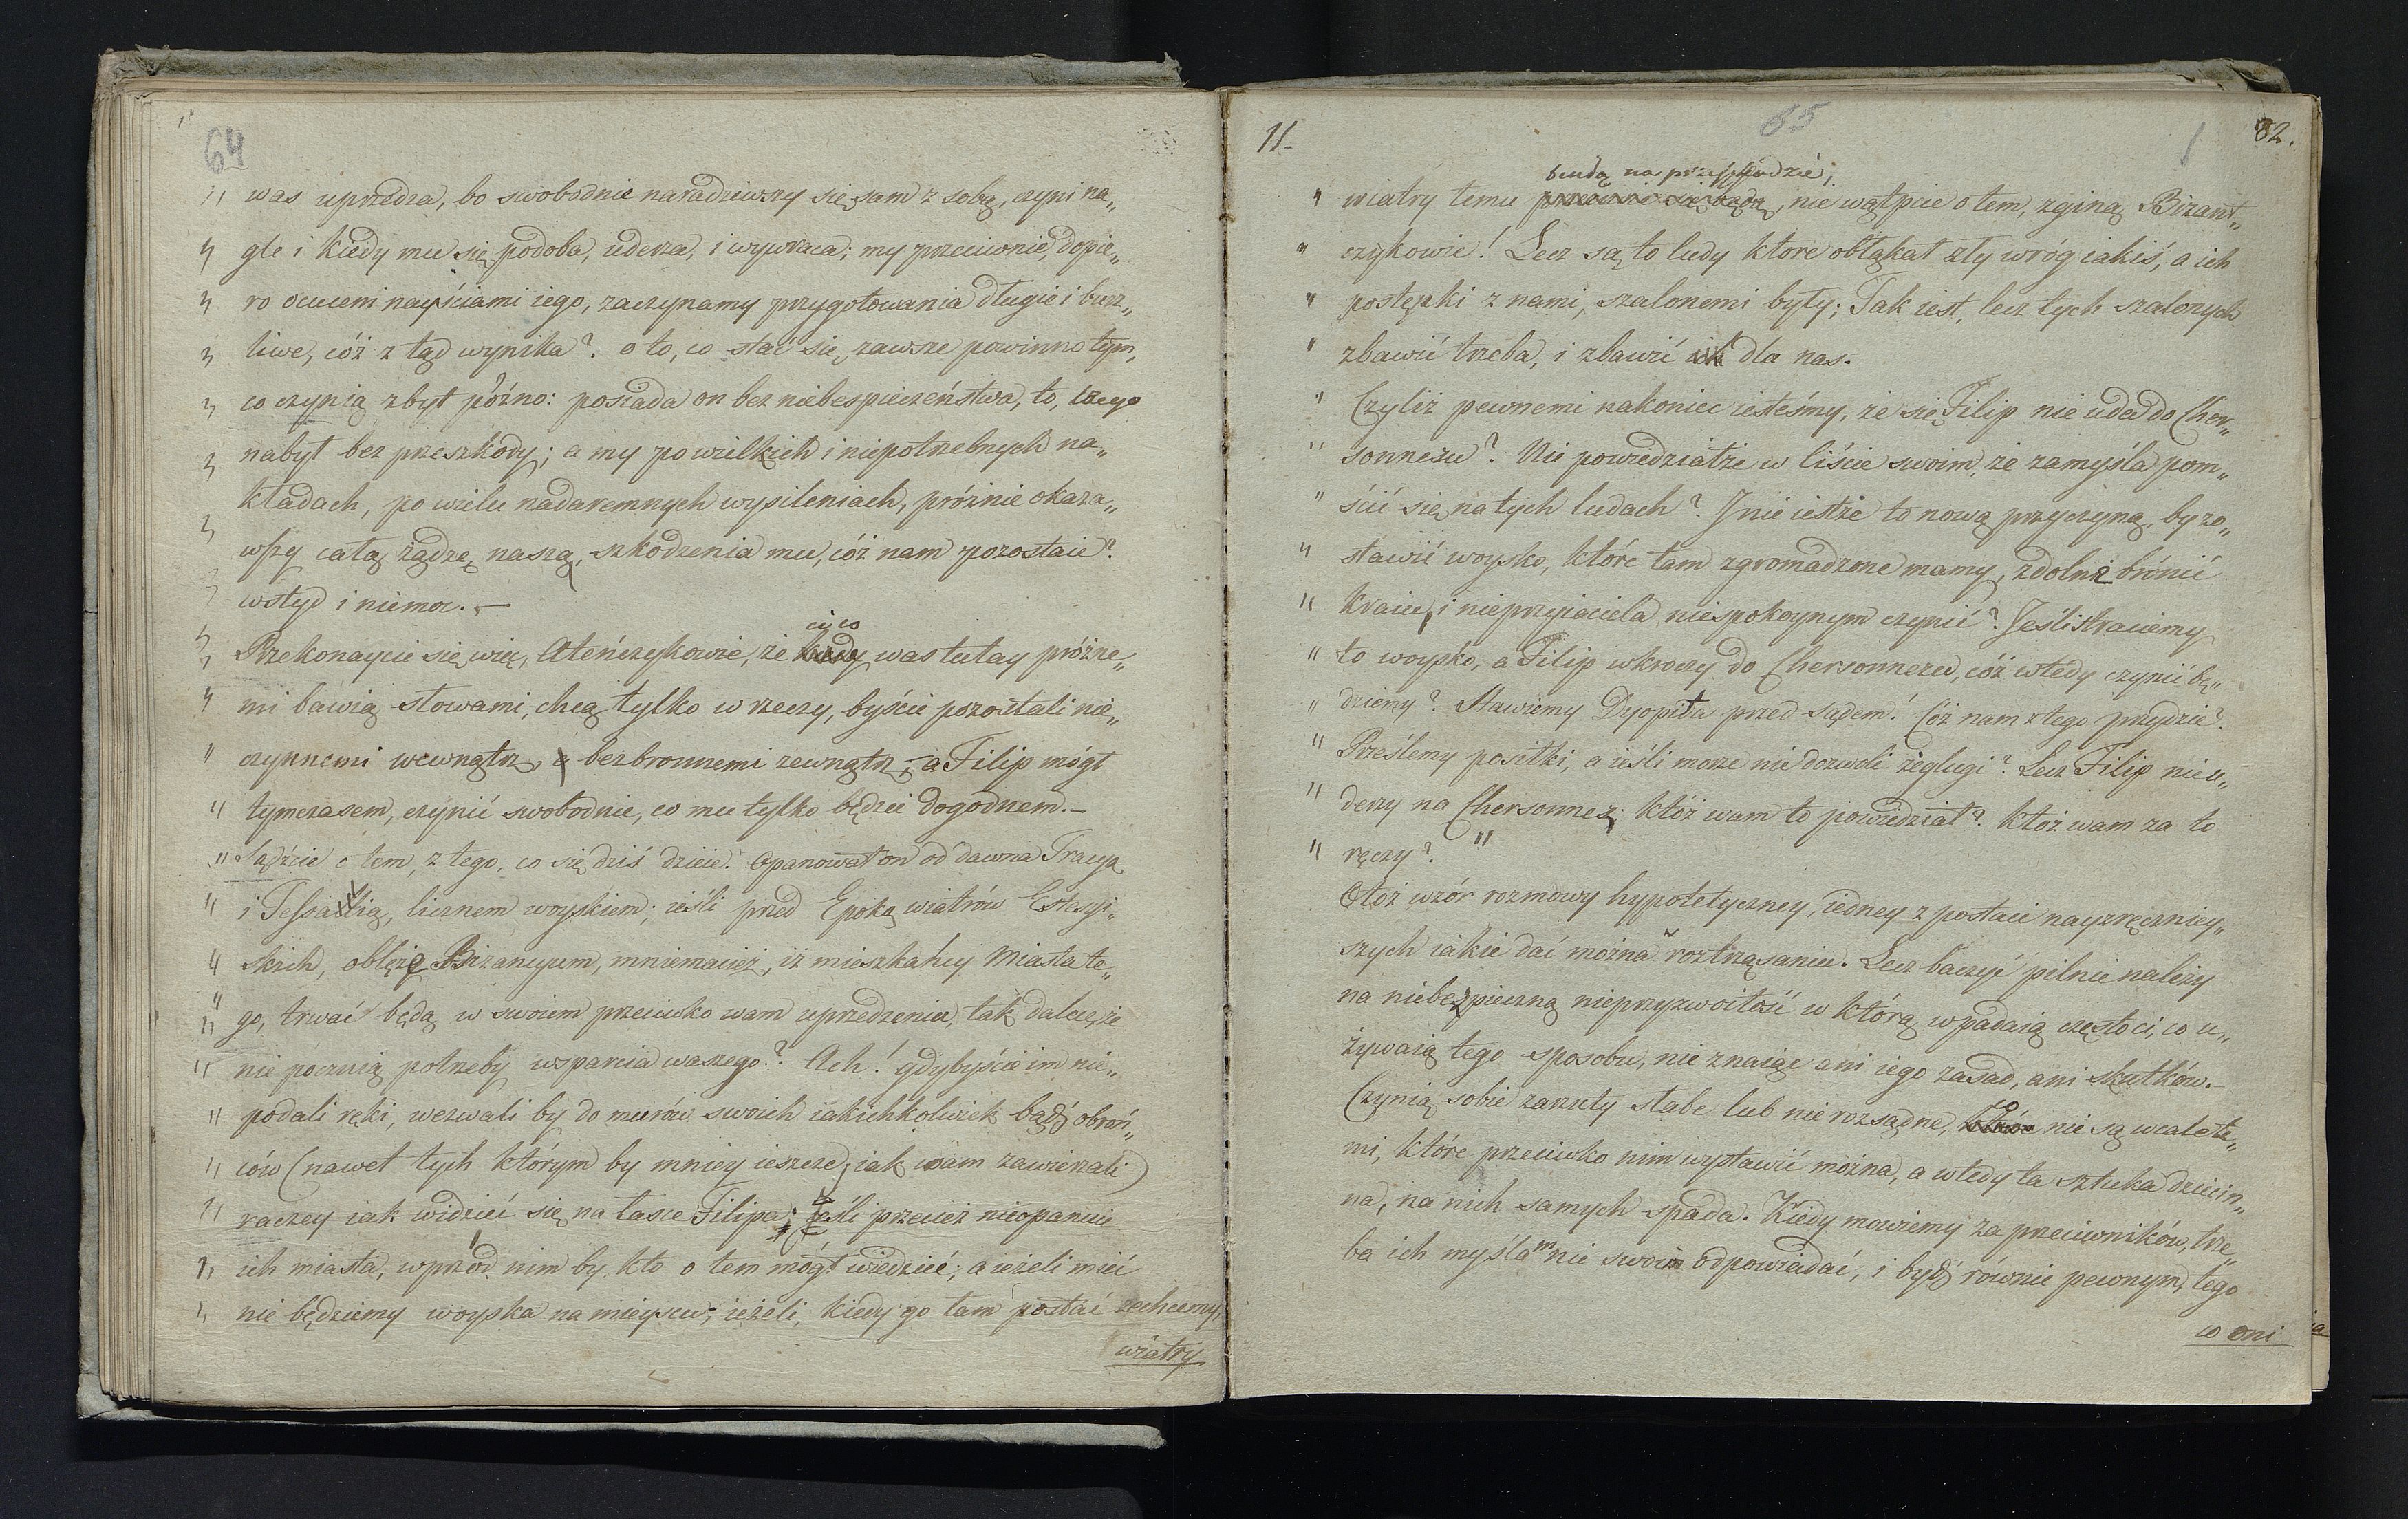 64
„ was uprzedza, bo swobodnie naradziwszy się sam z sobą, czyni na„
„ gle i kiedy mu się podoba, uderza, i wywraca; my przeciwnie, dopie„
„ ro ocuceni nayściami iego, zaczynamy przygotowania długie i burz„
„ liwe, cóż z tąd wynika? oto, co stać się zawsze powinno tym,
„ co czynią zbyt późno: posiada on bez niebespieczeństwa, to, czego
„ nabył bez przeszkody; a my po wielkich i niepotrzebnych na„
kładach, po wielu nadaremnych wysileniach, próżnie okaza„
„ wszy całą żądzę naszą, szkodzenia mu, cóż nam pozostaie?
„ wstyd i niemoc. —
ci co
„ Przekonaycie się więc, Ateńczykowie, że kiedy was tutay próżne„
„ mi bawią słowami, chcą tylko w rzeczy, byście pozostali nie„
„ czynnemi wewnątrz, a bezbronnemi zewnątrz, a Filip mógł
„ tymczasem, czynić swobodnie, co mu tylko będzie dogodnem. —
„ Sądźcie o tem, z tego, co się dziś dzieie. Opanował on od dawna Tracyą
„ i Tessalią, licznem woyskiem; ieśli przed Epoką wiatrów Etezyi„
„ skich, oblęże Bizancyum, mniemacież, iż mieszkańcy Miasta te„
„ go, trwać będą w swoiem przeciwko wam uprzedzeniu, tak dalece, że
„ nie poczuią potrzeby wsparcia waszego? Ach! gdybyście im nie„
„ podali ręki, wezwali by do murów swoich iakichkolwiek bądź obroń„
„ ców (nawet tych którym by mniey ieszcze, iak wam zawierzali)
„ raczey iak widzieć się na łasce Filipa; Jeśli przecież nieopanuie
„ ich miasta, wprzód nim by kto o tem mógł wiedzieć; a ieżeli mieć
„ nie będziemy woyska na mieyscu; ieżeli, kiedy go tam posłać zechcemy,
wiatry
11.
65
32.
będą na przeszkodzie,
„ wiatry temu przeciwić się będą, nie wątpcie o tem, zginą Bizant„
„ czykowie! Lecz są to ludy ktore obłąkał zły wróg iakiś, a ich
„ postępki z nami, szalonemi były; Tak iest, lecz tych szalonych
„ zbawić trzeba, i zbawić ich dla nas.
„ Czyliż pewnemi nakoniec iesteśmy, że się Filip nie uda do Cher„
„ sonnezu? Nie powiedziałże w liście swoim, że zamyśla pom„
„ ścić się na tych ludach? I nie iestże to nową przyczyną, by zo„
„ stawić woysko, które tam zgromadzone mamy, zdolne brónić
„ kraiu, i nieprzyiaciela niespokoynym czynić? Jeśli straciemy
„ to woysko, a Filip wkroczy do Chersonnezu, cóż wtedy czynić bę„
„ dziemy? Stawiemy Dyopita przed sądem! Cóż nam z tego przydzie?
„ Prześlemy posiłki, a ieśli morze nie dozwoli żeglugi? Lecz Filip nie u„
„ derzy na Chersonnez; któż wam to powiedział? Któż wam za to
„ ręczy? „
Otóż wzór rozmowy hypotetyczney, iedney z postaci nayzręczniey„
szych iakie dać można roztrząsaniu. Lecz baczyć pilnie należy
na niebezpieczną nieprzyzwoitość w którą wpadaią często ci, co u„
żywaią tego sposobu, nie znaiąc ani iego zasad, ani skutków. —
co
Czynią sobie zarzuty słabe lub nie rozsądne, które nie są wcale te„
mi, które przeciwko nim wystawić można, a wtedy ta sztuka dziecin„
na, na nich samych spada. Kiedy mowiemy za przeciwników, trze„
ba ich myślom nie swoim odpowiadać, i bydź równie pewnym, tego
co oni